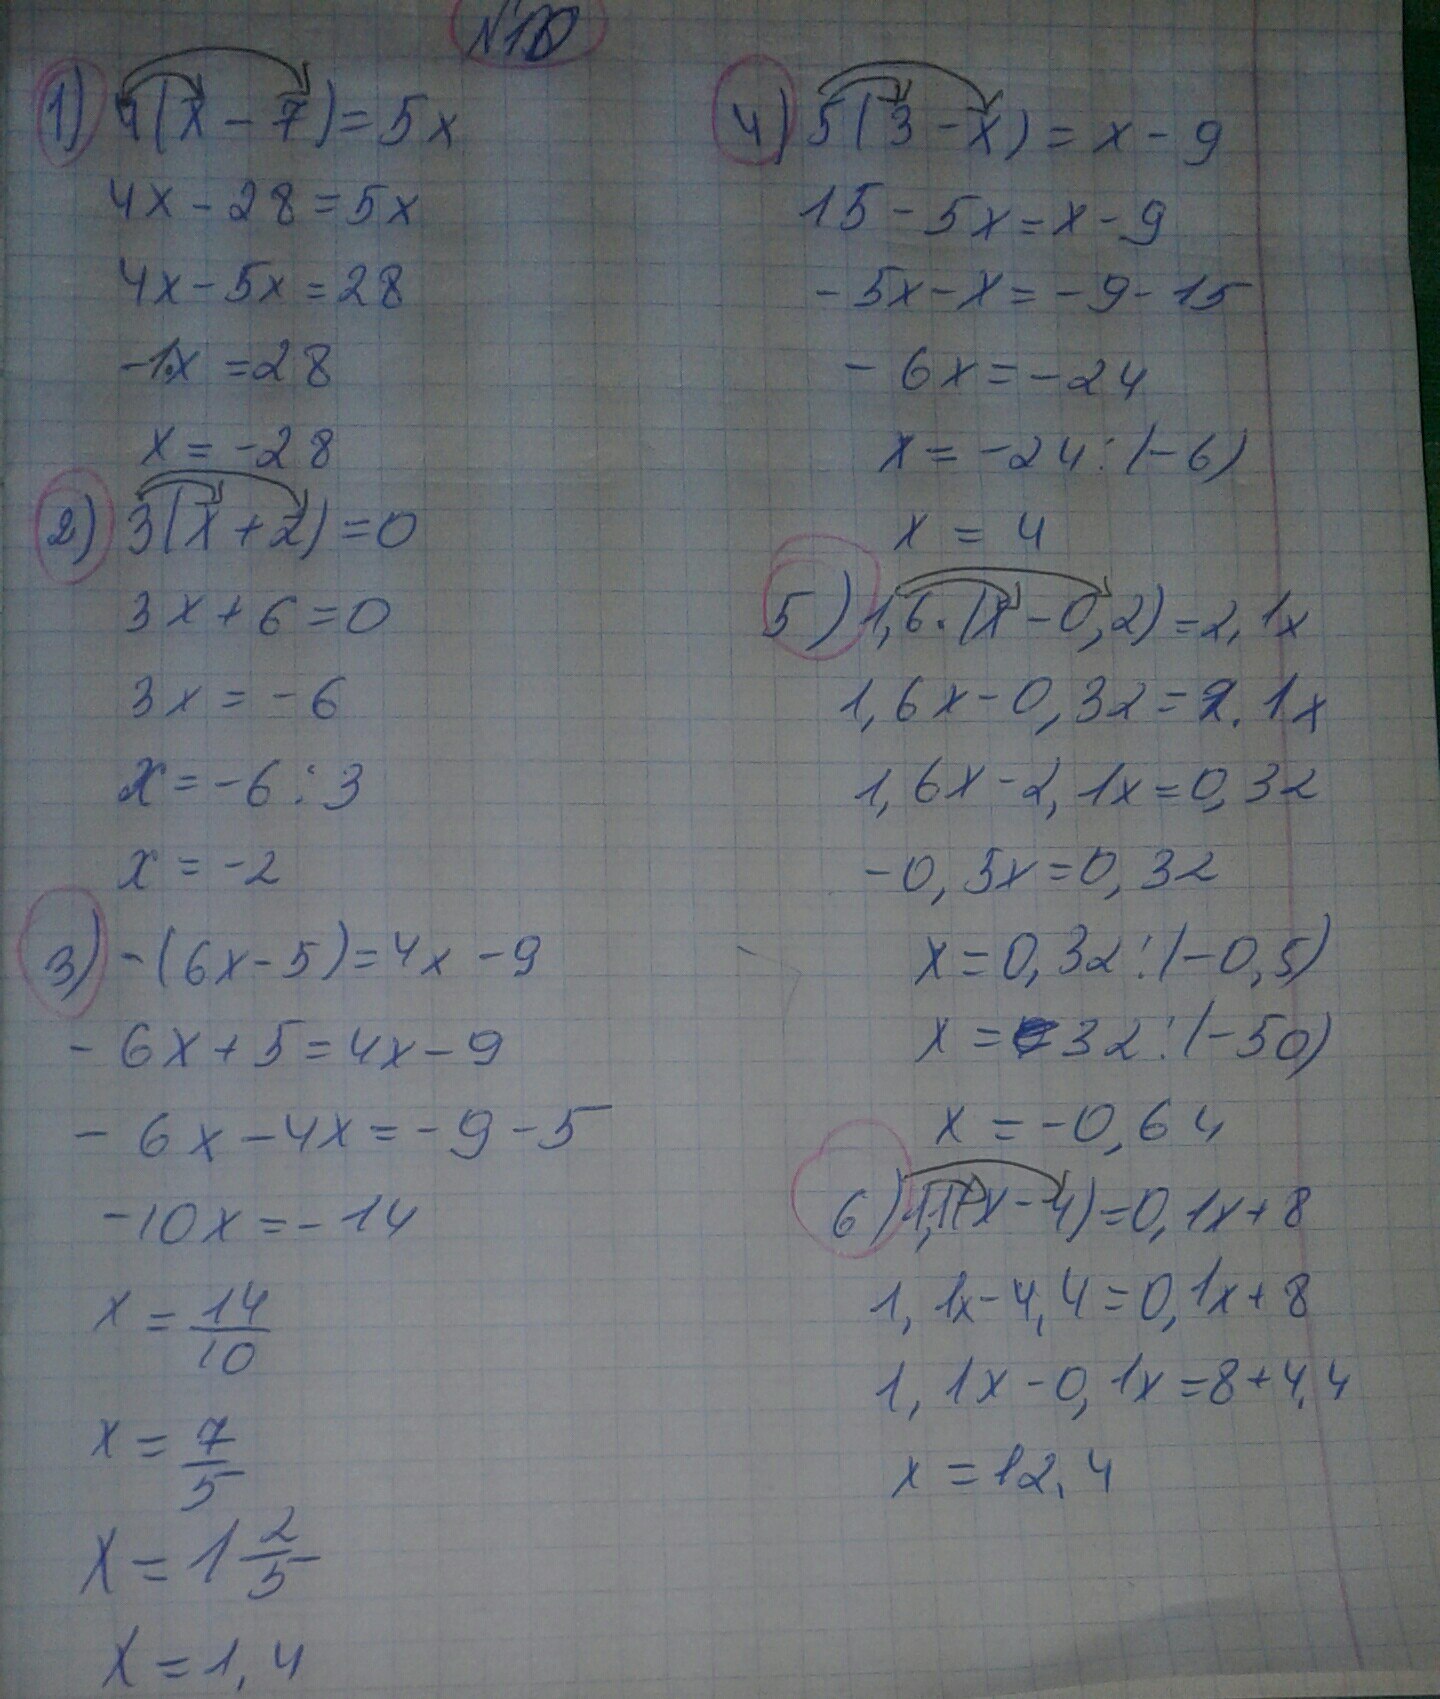 1) 4(x - 7) = 5x
4x - 28 = 5x
4x - 5x = 28
-1x = 28
x = -28
2) 3(x + 2) = 0
3x + 6 = 0
3x = -6
x = -6 : 3
x = -2
3) -(6x - 5) = 4x - 9
- 6x + 5 = 4x - 9
- 6x - 4x = -9 - 5
-10x = -14
x = 14/10
x = 7/5
x = 1 2/5
x = 1,4
4) 5(3 - x) = x - 9
15 - 5x = x - 9
- 5x - x = -9 - 15
- 6x = -24
x = -24 : (-6)
x = 4
5) 1,6 · (x - 0,2) = 2,1x
1,6x - 0,32 = 2,1x
1,6x - 2,1x = 0,32
-0,5x = 0,32
x = 0,32 : (-0,5)
x = 32 : (-50)
x = -0,64
6) 1,1(x - 4) = 0,1x + 8
1,1x - 4,4 = 0,1x + 8
1,1x - 0,1x = 8 + 4,4
x = 12,4